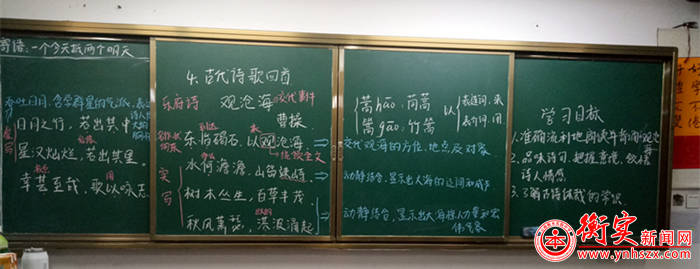 寄语:一个今天抵两个明天
吞吐日月,含孕群星的气派,表达
日月之行,若出其中
星汉灿烂,若出其里
幸甚至哉,歌以咏志
虚写
4.古代诗歌四首
乐府诗 观沧海 交代事件
曹操
到达
东临碣石,以观沧海
统领全文
水何澹澹,山岛竦峙
实写
树木丛生,百草丰茂
秋风萧瑟,洪波涌起
蒿hāo,茼蒿
篙gāo,竹篙
以
表连词,来
⇒交代观海的方位、地点及对象
⇒动静结合,显示出大海的辽阔和威严
⇒动静结合,显示出大海惊人力量和宏
伟气象
学习目标
1.准确流利地阅读
2.品味诗句,把握意境,
诗人情感
3.了解古诗体裁的常识
衡实新闻网
www.ynhszx.com